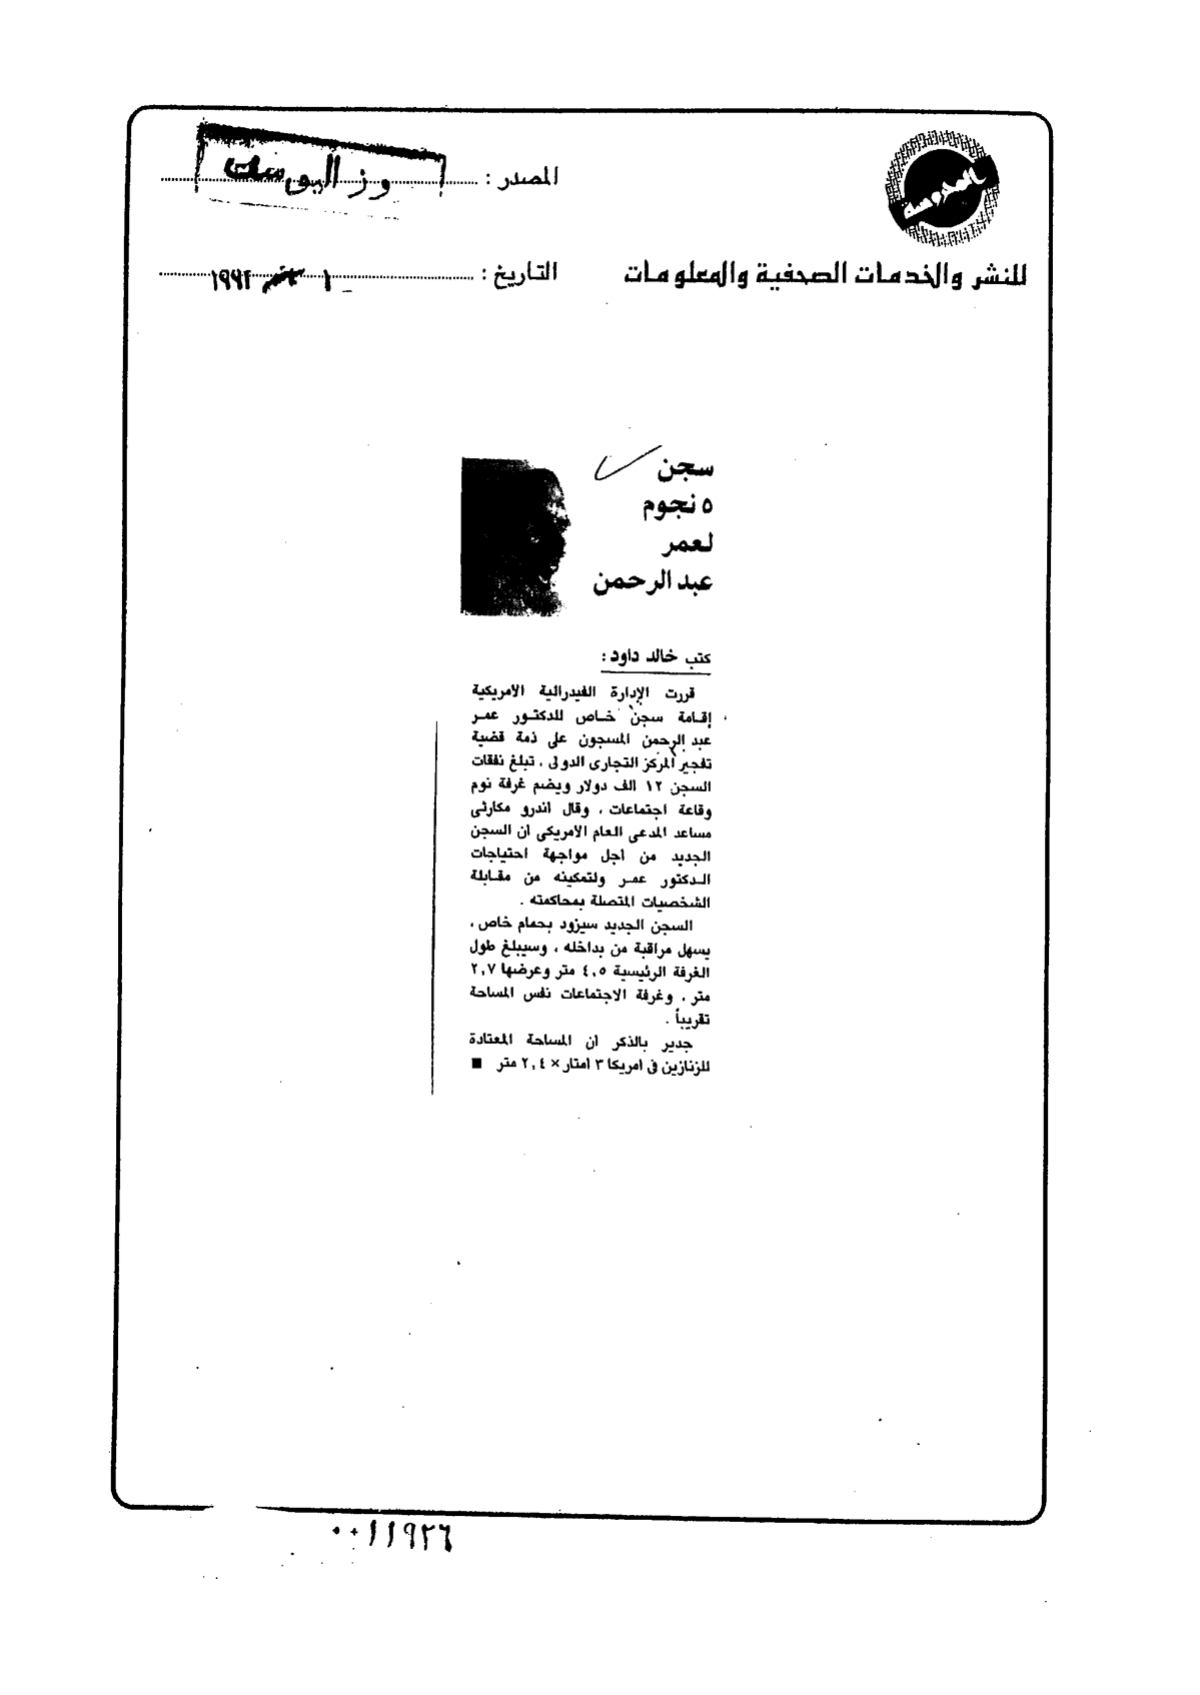 المحروسة
المصدر :
وز اليوسف
للنشر والخدمات الصحفية والمعلومات
التاريخ :
سجن
٥ نجوم
لعمر
عبد الرحمن
كتب خالد داود :
قررت الإدارة الفيدرالية الامريكية
إقامة سجن خاص للدكتور عمر
عبد الرحمن المسجون على ذمة قضية
تفجير المركز التجارى الدولى ، تبلغ نفقات
السجن ١٢ الف دولار ويضم غرفة نوم
وقاعة اجتماعات ، وقال اندرو مكارثى
مساعد المدعى العام الامريكى ان السجن
الجديد من اجل مواجهة احتياجات
الدكتور عمر ولتمكينه من مقابلة
الشخصيات المتصلة بمحاكمته .
السجن الجديد سيزود بحمام خاص ،
يسهل مراقبة من بداخله ، وسيبلغ طول
الغرفة الرئيسية ٤,٥ متر وعرضها ٢,٧
متر ، وغرفة الاجتماعات نفس المساحة
تقريباً .
جدير بالذكر ان المساحة المعتادة
للزنازين فى امريكا ٣ امتار × ٢,٤ متر ■
٠٠١١٩٢٦